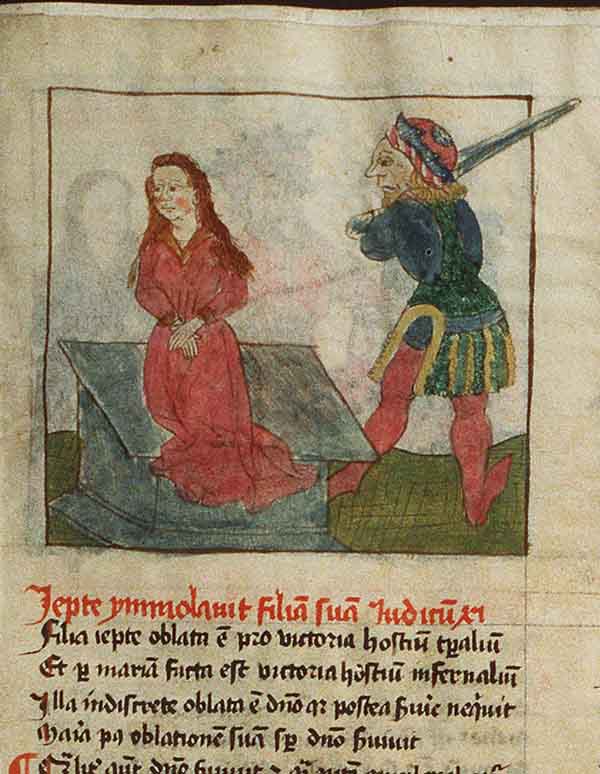 Jepte ymmolavit filiā suā Iudicū xi
Filia iepte oblata ē pro victoria hostiū tp̄aliū
Et p̱ mariam facta est victoria hostiū infernaliū
Illa indiscrete oblata ē dn̄o q̄r postea s̄uire neq̇uit
Maria
oblationē suā sp̄ dn̄o s̄uiuit